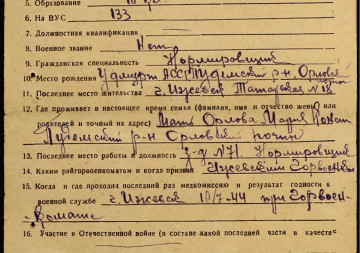 5. Образование
6. На ВУС 133
7. Должностная квалификация
8. Военное звание Нет
9. Гражданская специальность Нормировщик
10. Место рождения Удмурт АССР Пудемский р-н Орловский
11. Последнее место жительства г. Ижевск Татарская № 18
12. Где проживает в настоящее время семья (фамилия, имя и отчество жены или
родителей и точный их адрес) Мать Орлова Мария
р-н Орловский почин
13. Последнее место работы и должность з-д № 71. Нормировщик
14. Каким райгорвоенкоматом и когда призван Ижевский Горвоен
15. Когда и где проходил последний раз медкомиссию и результат годности к
военной службе г. Ижевск 10/7-44 при Горвоен-
комате
16. Участие в Отечественной войне (в составе какой последней части в качест